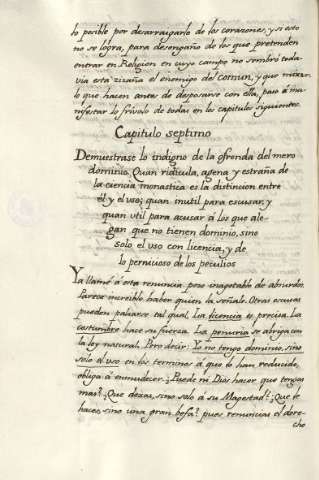 lo posible por desarraygarlo de los corazones, y si esto
no se logra, para desengaño de los que pretenden
entrar en Religion en cuyo campo no sembró toda-
via esta zizaña el enemigo del comun, y que miren
lo que hacen antes de desposarse con ella, paso á ma-
nifestar lo frivolo de todas en los capitulos siguientes.
Capitulo septimo
Demuestrase lo indigno de la ofrenda del mero
dominio. Quan ridicula, agena y estraña de
la ciencia monastica es la distincion entre
él y el uso; quan inutil para escusar, y
quan util para acusar á los que ale-
gan que no tienen dominio, sino
solo el uso con licencia, y de
lo pernicioso de los peculios
Ya llamé á esta renuncia pozo inagotable de absurdos.
Parece increible haber quien la señale. Otras escusas
pueden paliarse tal qual. La licencia es precisa. La
costumbre hace su fuerza. La penuria se abriga con
la ley natural. Pero decir: Yo no tengo dominio, sino
solo el uso en los terminos á que le han reducido,
obliga á enmudecer. ¿Puede ni Dios hacer que tengas
mas? ¿Que dexas, sino solo á su Magestad? ¿Que le
haces, sino una gran befa? pues renuncias el dere-
cho